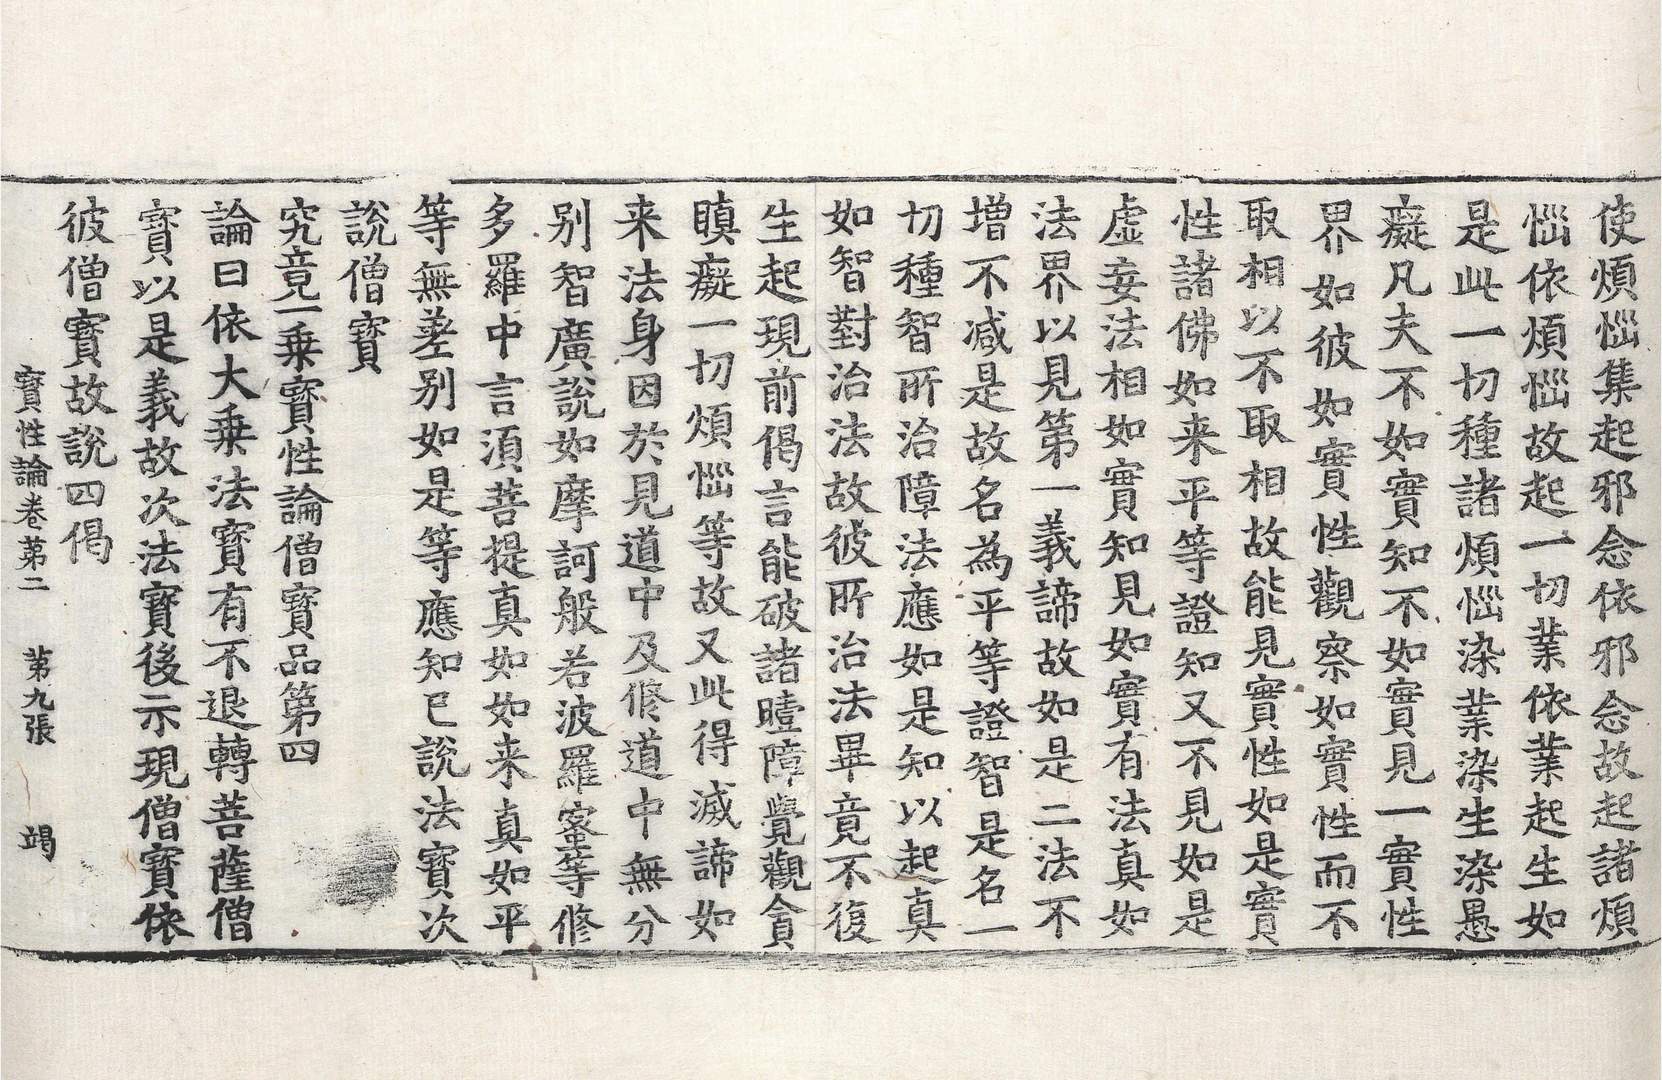 使煩惱集起邪念依邪念故起諸煩
惱依煩惱故起一切業依業起生如
是此一切種諸煩惱染業染生染愚
癡凡夫不如實知不如實見一實性
界如彼如實性觀察如實性而不
取相以不取相故能見實性如是實
性諸佛如来平等證知又不見如是
虛妄法相如實知見如實有法真如
法界以見第一義諦故如是二法不
增不減是故名為平等證智是名一
切種智所治障法應如是知以起真
如智對治法故彼所治法畢竟不復
生起現前偈言能破諸曀障覺觀貪
瞋癡一切煩惱等故又此得滅諦如
来法身因於見道中及修道中無分
别智廣說如摩訶般若波羅蜜等修
多羅中言須菩提真如如来真如平
等無差别如是等應知已說法寶次
說僧寶
究竟一乗寶性論僧寶品第四
論曰依大乗法寶有不退轉菩薩僧
寶以是義故次法寶後示現僧寶依
彼僧寶故說四偈
寶性論卷第二 第九張 竭